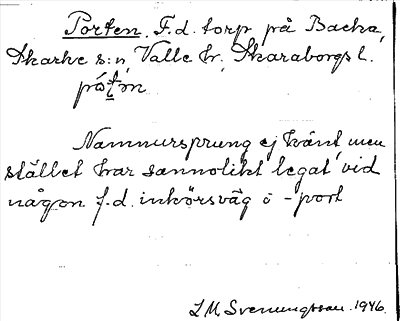 Porten. F.d. torp på Backa,
Skarke s:n, Valle hr, Skaraborgs l.
Namnursprung ej känt men
stället har sannolikt legat vid
någon f.d. inkörsväg o -port
I.M. Svenungsson. 1946.